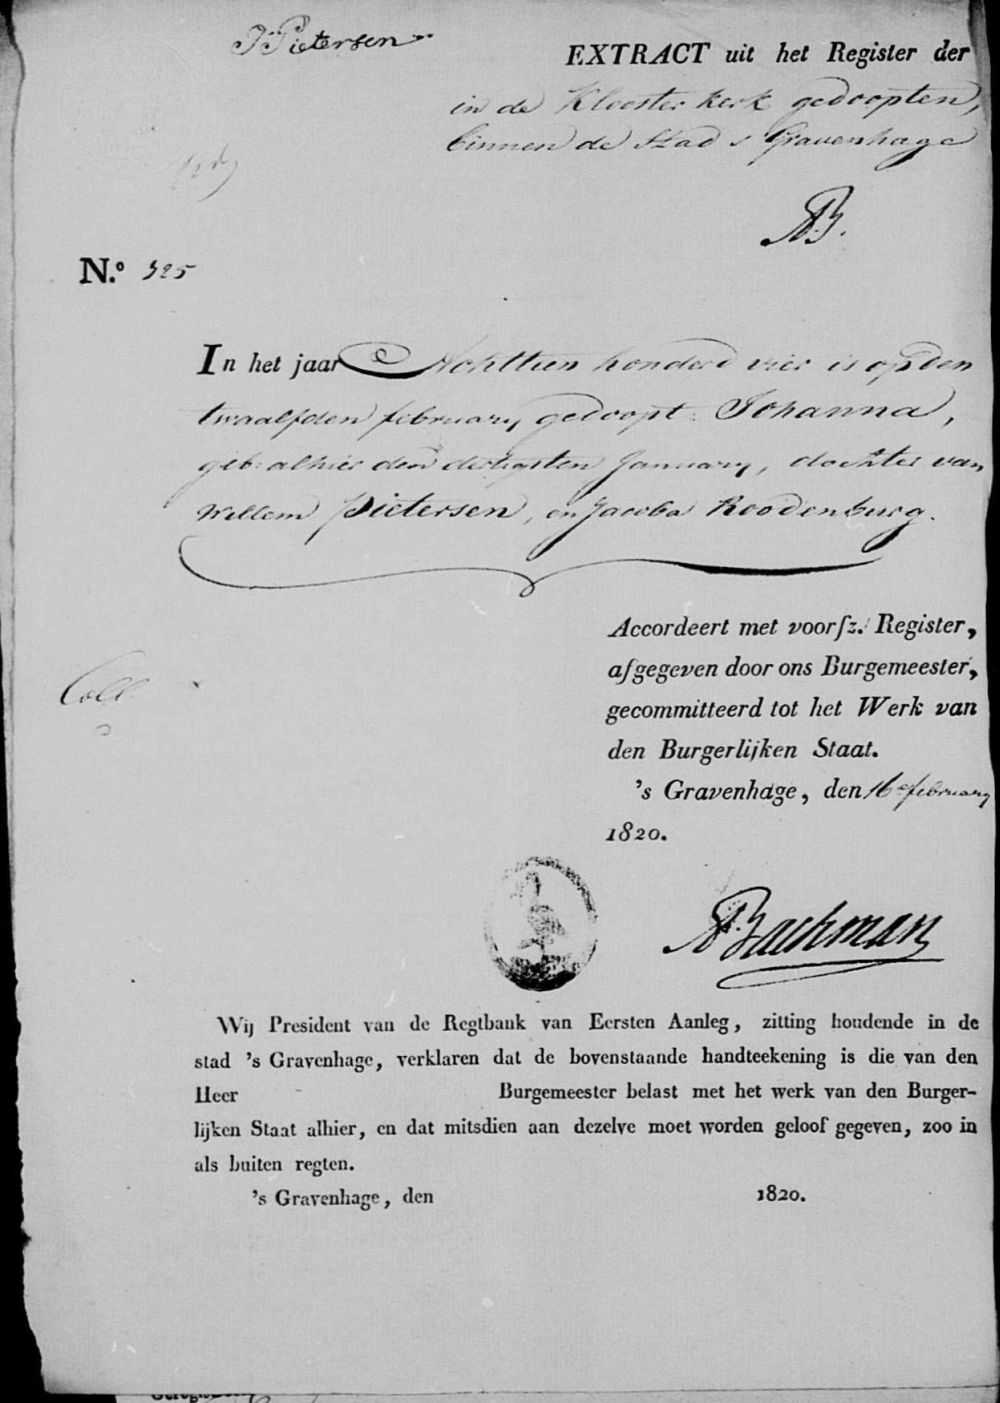 J Pietersen
EXTRACT uit het Register der
in de Klooster kerk gedoopten,
binnen de Stad s Gravenhage
AB.
N.o 325
In het jaar Achttien honderd vier is op den
twaalfden february gedoopt: Johanna,
geb: alhier den dertigsten January, dochter van
Willem Pietersen, en Jacoba Roodenburg.
Accordeert met voorſz. Register,
afgegeven door ons Burgemeester,
gecommitteerd tot het Werk van
den Burgerlijken Staat.
's Gravenhage, den 16e february
1820.
Coll
A Bachman
Wij President van de Regtbank van Eersten Aanleg, zitting houdende in de
stad 's Gravenhage, verklaren dat de bovenstaande handteekening is die van den
Heer Burgemeester belast met het werk van den Burger-
lijken Staat alhier, en dat mitsdien aan dezelve moet worden geloof gegeven, zoo in
als buiten regten.
's Gravenhage, den 1820.